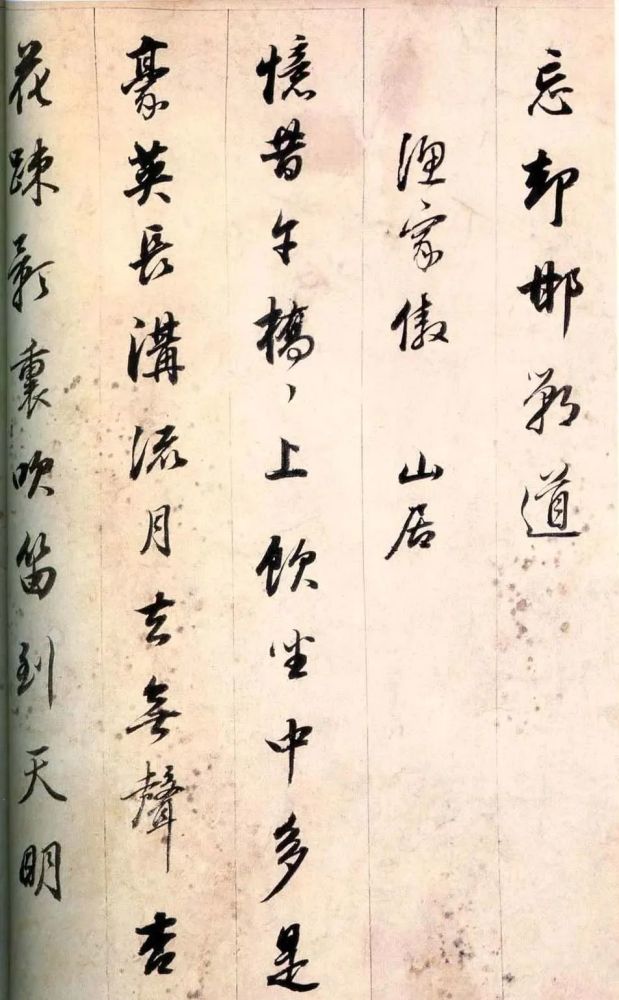 忘却邯鄲道
渔家傲 山居
憶昔午橋丶上飲坐中多是
豪英長溝流月去無聲杏
花踈影裏吹笛到天明